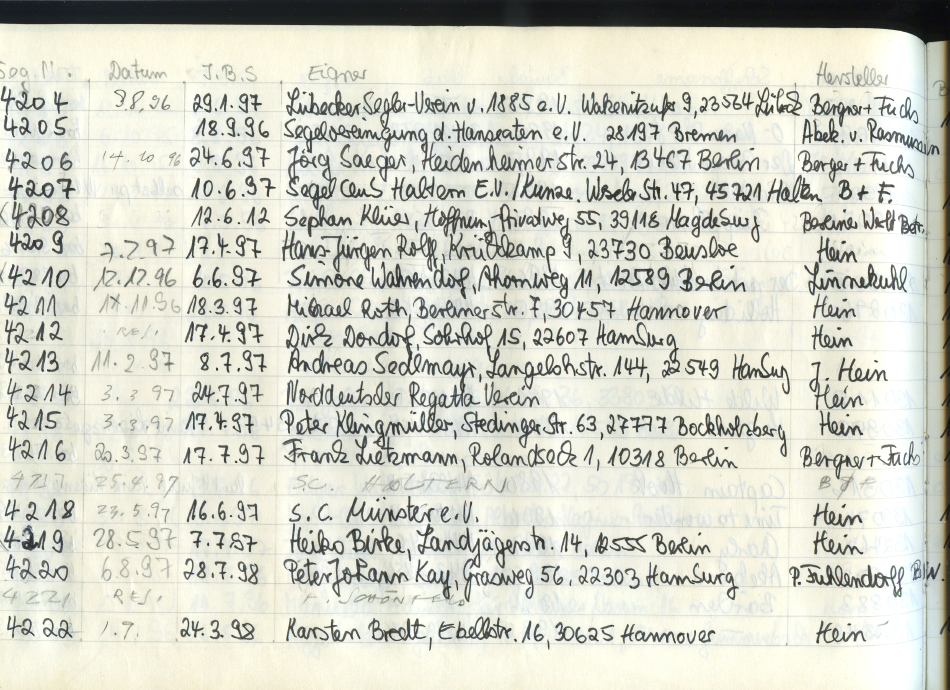 Seg.Nr. Datum J.B.S Eigner Hersteller
4204 8.8.96 29.1.97 Lübecker Segler-Verein v. 1885 a.V. Wakenitzufer 9, 23564 Lübeck Bergner+Fuchs
4205 18.9.96 Segelvereinigung d. Hanseaten e.V. 28197 Bremen Abek. v. Rasmussen
4206 14.10.96 24.6.97 Jörg Saeger, Heidenheimerstr. 24, 13467 Berlin Berger+Fuchs
4207 10.6.97 Segelclub Haltern E.V./Kunze. Str. 47, 45721 Haltern B + F.
4208 12.6.12 Sephan Klüer, Privatweg 55, 39118 Magdeburg Berliner
4209 7.2.97 17.4.97 Hans-Jürgen Rolff, Krützkamp 9, 23730 Hein
4210 12.12.96 6.6.97 Simone Wahrendorf, Ahornweg 11, 12589 Berlin Linnekuhl
4211 11.11.96 18.3.97 Michael Roth, Berlinerstr. 7, 30457 Hannover Hein
4212 RES. 17.4.97 Dirk Dondorf, Sohrhof 15, 22607 Hamburg Hein
4213 11.2.97 8.7.97 Andreas Sedlmayr, Langelohstr. 144, 22549 Hamburg J. Hein
4214 3.3.97 24.7.97 Norddeutscher Regatta Verein Hein
4215 3.3.97 17.4.97 Peter Klingmüller, Stedinger Str. 63, 27777 Bockholzberg Hein
4216 20.3.97 17.7.97 Frank Lietzmann, Rolandseck 1, 10318 Berlin Bergner+Fuchs
4217 25.4.97 S.C. HOLSTERN B+F
4218 23.5.97 16.6.97 S.C. Münster e.V. Hein
4219 28.5.97 7.7.97 Heiko Birke, Landjägerstr. 14, 12555 Berlin Hein
4220 6.8.97 28.7.98 Peter Johann Kay, Grasweg 56, 22303 Hamburg P. Fuhlendorff B.W.
4221 RES. SCHÖNFELD
4222 1.9. 24.3.98 Karsten Bredt, Ebellstr. 16, 30625 Hannover Hein